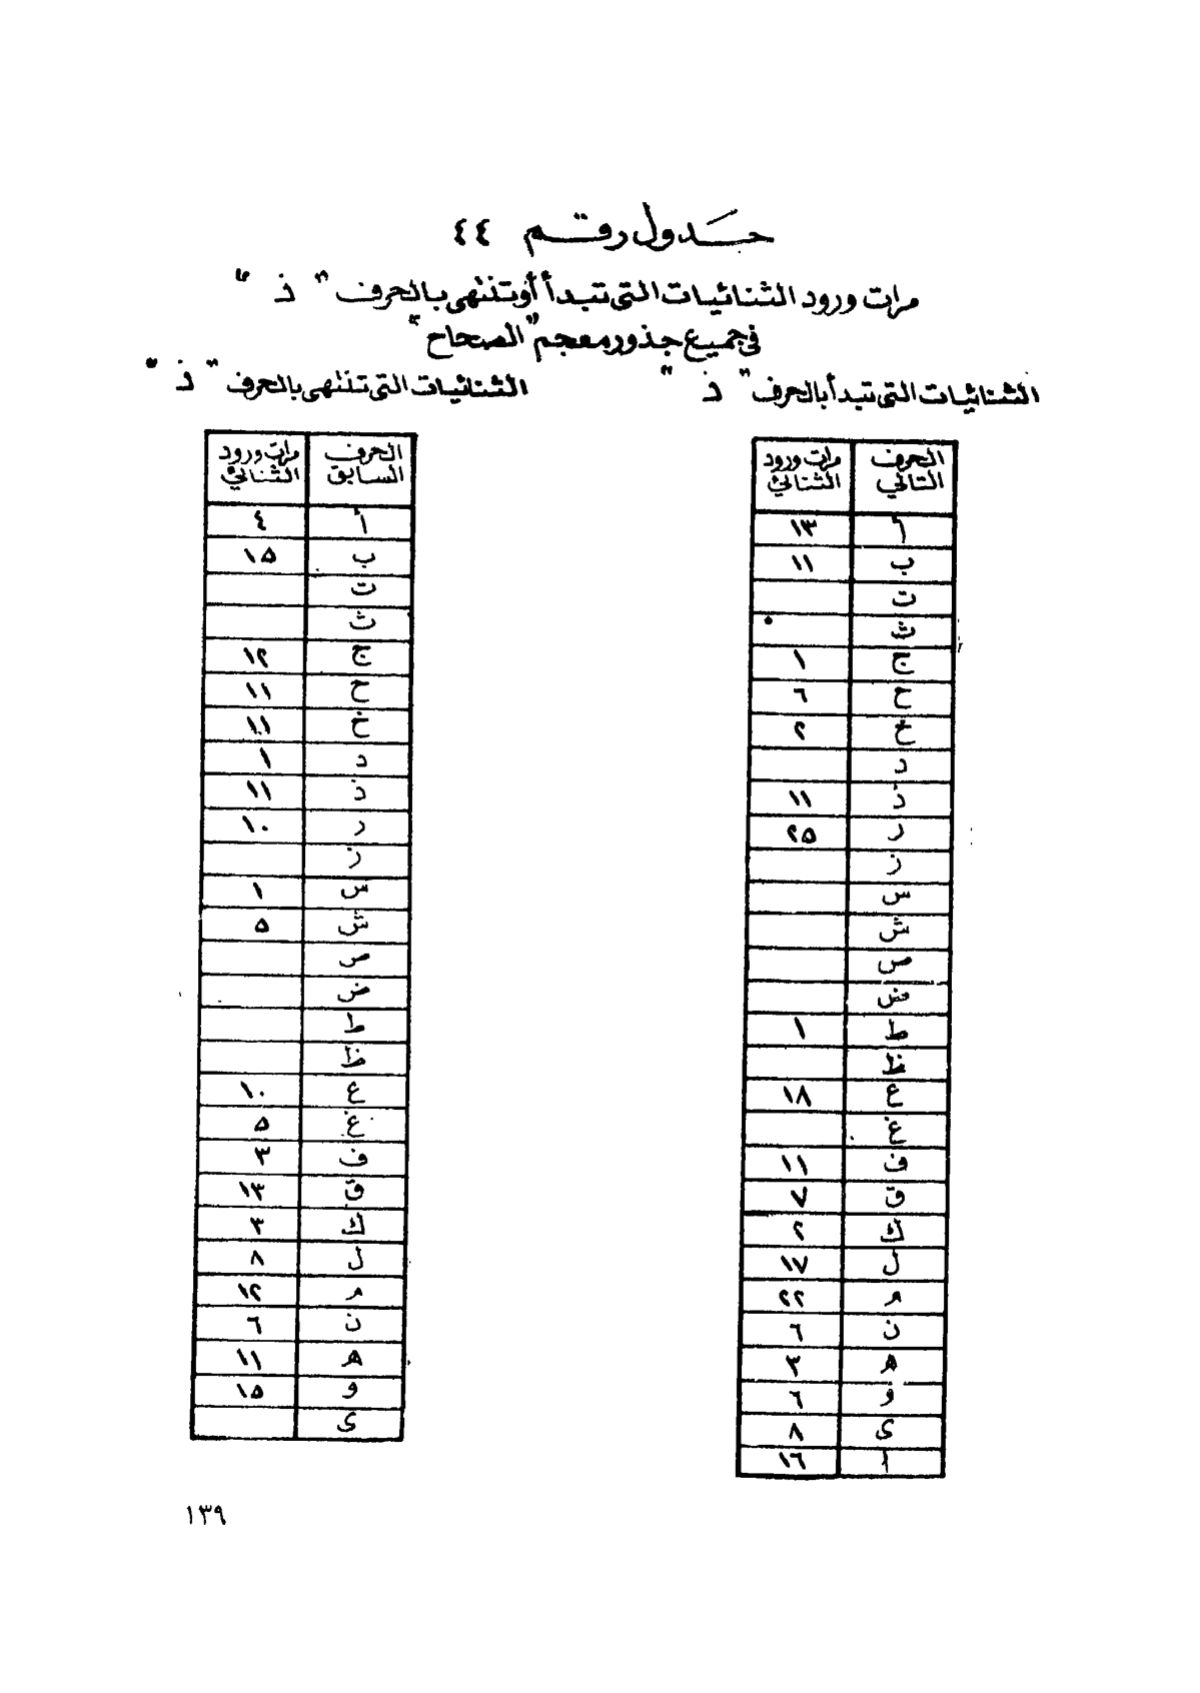 جدول رقم ٤٤
مرات ورود الثنائيات التى تبدأ أو تنتهى بالحرف " ذ "
فى جميع جذور معجم "الصحاح"
الثنائيات التى تبدأ بالحرف " ذ "
الحرف التالي مرات ورود الثنائي
أ ١٣
ب ١١
ت
ث
ج ١
ح ٦
خ ٢
د
ذ ١١
ر ٢٥
ز
س
ش
ص
ض
ط ١
ظ
ع ١٨
غ
ف ١١
ق ٧
ك ٢
ل ١٧
م ٢٢
ن ٦
ه ٣
و ٦
ى ٨
ا ١٦
الثنائيات التى تنتهى بالحرف " ذ "
الحرف السابق مرات ورود الثنائي
أ ٤
ب ١٥
ت
ث
ج ١٢
ح ١١
خ ١١
د ١
ذ ١١
ر ١٠
ز
س ١
ش ٥
ص
ض
ط
ظ
ع ١٠
غ ٥
ف ٣
ق ١٣
ك ٣
ل ٨
م ١٢
ن ٦
ه ١١
و ١٥
ى
١٣٩